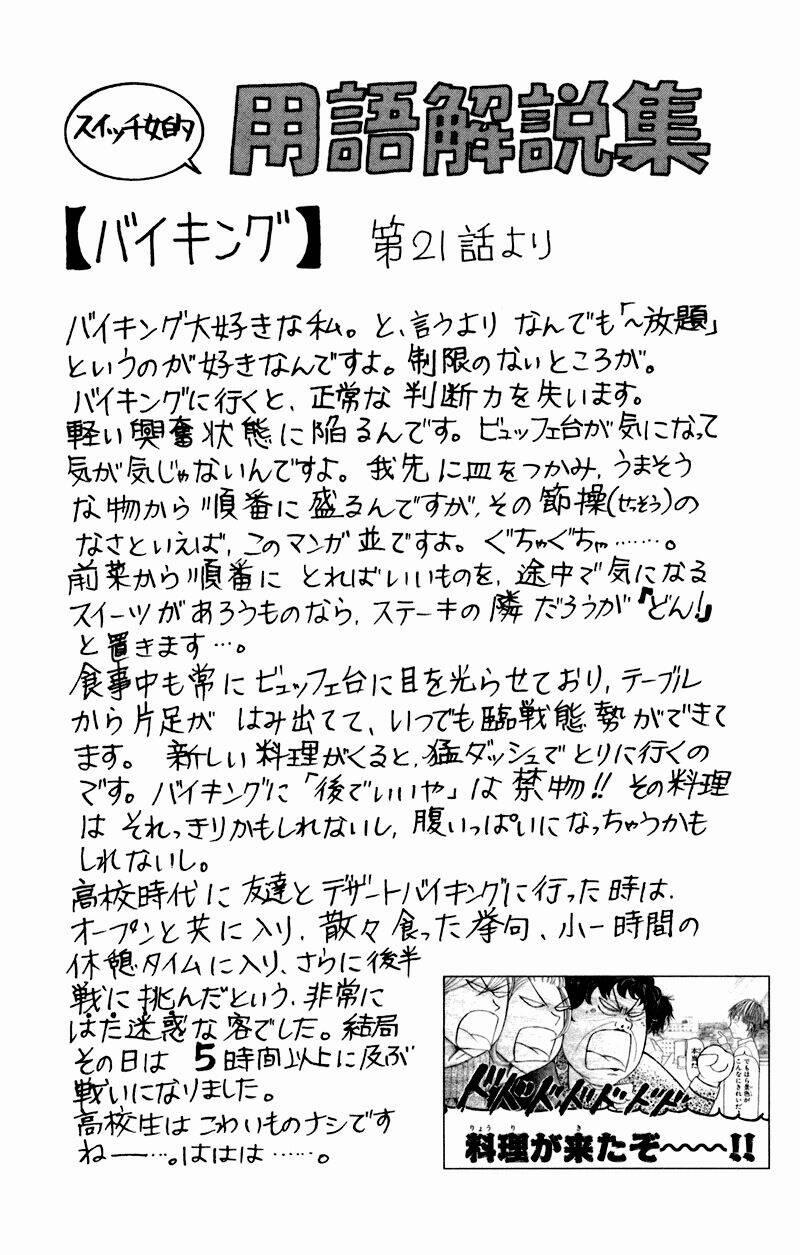 スイッチ女的
用語解説集
【バイキング】 第21話より
バイキング大好きな私。と、言うより なんでも「〜放題」
というのが好きなんですよ。制限のないところが。
バイキングに行くと、正常な判断力を失います。
軽い興奮状態に陥るんです。ビュッフェ台が気になって
気が気じゃないんですよ。我先に皿をつかみ、うまそう
な物から順番に盛るんですが、その節操(せっそう)の
なさといえば、このマンガ並ですよ。ぐちゃぐちゃ………。
前菜から順番に とればいいものを、途中で気になる
スイーツがあろうものなら、ステーキの隣だろうが『どん!』
と置きます…。
食事中も常にビュッフェ台に目を光らせており、テーブル
から片足が はみ出てて、いつでも臨戦態勢ができて
ます。 新しい料理がくると、猛ダッシュでとりに行くの
です。バイキングに「後でいいや」は禁物!! その料理
は それっきりかもしれないし、腹いっぱいになっちゃうかも
しれないし。
高校時代に友達とデザートバイキングに行った時は、
オープンと共に入り、散々食った挙句、小一時間の
休憩タイムに入り、さらに後半
戦に挑んだという、非常に
はた迷惑な客でした。結局
その日は 5時間以上に及ぶ
戦いになりました。
高校生はこわいものナシです
ねー…。ははは……。
でもほら景色が
こんなにきれいだ
本当だ
ドドドドドドド
料理が来たぞ〜〜〜〜!!